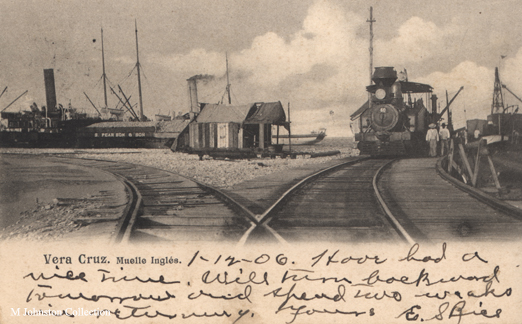 S. PEARSON & SON
Vera Cruz. Muelle Inglés. 1-12-06. Hoor had a
nice time. Will turn backward
tomorrow and spend two weeks
Yours E. S. Rice
M Johnston Collection